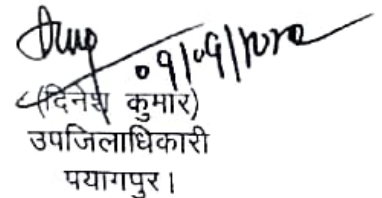 09/09/2022
(दिनेश कुमार)
उपजिलाधिकारी
पयागपुर।